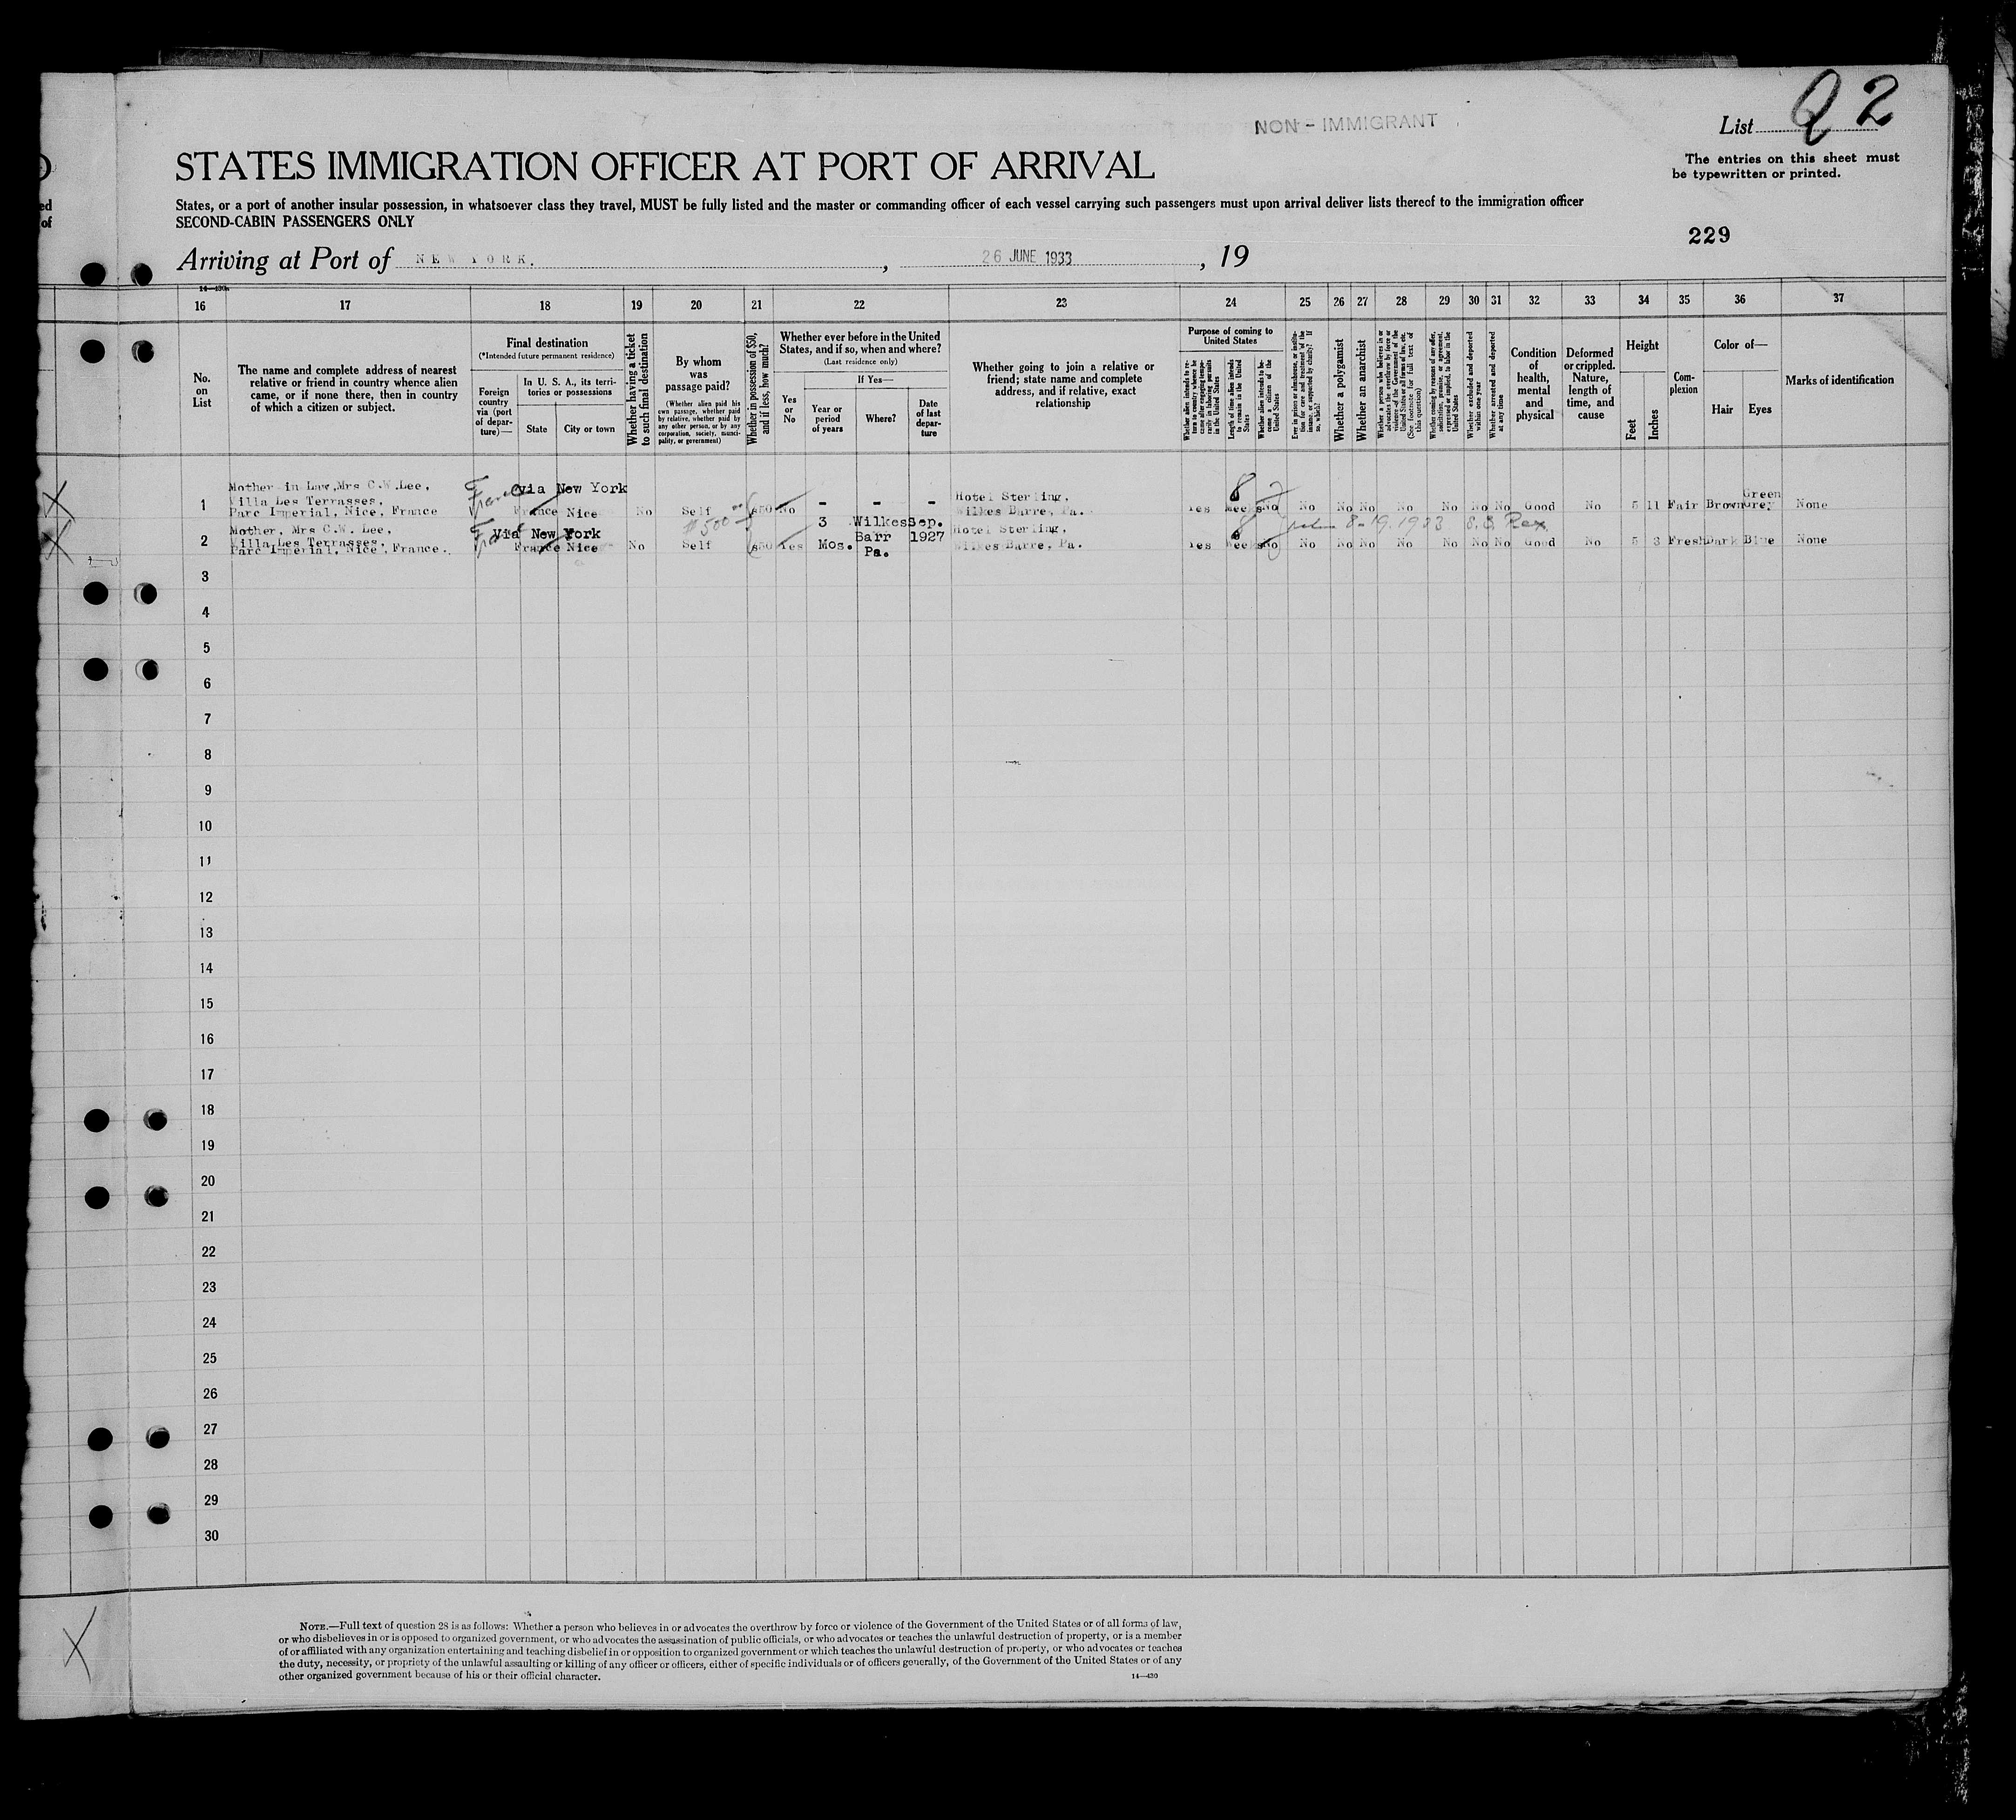 NON - IMMIGRANT
List 2
The entries on this sheet must
be typewritten or printed.
STATES IMMIGRATION OFFICER AT PORT OF ARRIVAL
ed
of
States, or a port of another insular possession, in whatsoever class they travel, MUST be fully listed and the master or commanding officer of each vessel carrying such passengers must upon arrival deliver lists thereof to the immigration officer
SECOND-CABIN PASSENGERS ONLY
229
Arriving at Port of NEW YORK. , 26 JUNE 1933 , 19
14—430
16 17 18 19 20 21 22 23 24 25 26 27 28 29 30 31 32 33 34 35 36 37
No.
on
List
The name and complete address of nearest
relative or friend in country whence alien
came, or if none there, then in country
of which a citizen or subject.
Final destination
(*Intended future permanent residence)
Foreign
country
via (port
of depar-
ture)—
In U. S. A., its terri-
tories or possessions
State
City or town
Whether having a ticket
to such final destination
By whom
was
passage paid?
(Whether alien paid his
own passage, whether paid
by relative, whether paid by
any other person, or by any
corporation, society, munici-
pality, or government)
Whether in possession of $50,
and if less, how much?
Whether ever before in the United
States, and if so, when and where?
(Last residence only)
Yes
or
No
If Yes—
Year or
period
of years
Where?
Date
of last
depar-
ture
Whether going to join a relative or
friend; state name and complete
address, and if relative, exact
relationship
Purpose of coming to
United States
Whether alien intends to re-
turn to country whence he
came after engaging tempo-
rarily in laboring pursuits
in the United States
Length of time alien intends
to remain in the United
States
Whether alien intends to be-
come a citizen of the
United States
Ever in prison or almshouse, or institu-
tion for care and treatment of the
insane, or supported by charity? If
so, which?
Whether a polygamist
Whether an anarchist
Whether a person who believes in or
advocates the overthrow by force or
violence of the Government of the
United States or all forms of law, etc.
(See footnote for full text of
this question)
Whether coming by reasons of any offer,
solicitation, promise, or agreement,
expressed or implied, to labor in the
United States
Whether excluded and deported
within one year
Whether arrested and deported
at any time
Condition
of
health,
mental
and
physical
Deformed
or crippled.
Nature,
length of
time, and
cause
Height
Feet
Inches
Com-
plexion
Color of—
Hair
Eyes
Marks of identification
Mother in Law, Mrs C.W.Lee,
Villa Les Terrasses,
Parc Imperial, Nice, France
1 France via New York France Nice No Self $50 No - - - Hotel Sterling,
Wilkes Barre, Pa. Yes 8 Weeks No No No No No No No No Good No 5 11 Fair Brown Green Grey None
$500
8-19.1933 S.S. Rex
Mother, Mrs C.W. Lee,
Villa Les Terrasses,
Parc Imperial, Nice, France.
2 Via New York France Nice No Self $50 Yes 3 Mos. Wilkes Barr Pa. Sep. 1927 Hotel Sterling,
Wilkes Barre, Pa. Yes 8 Weeks No No No No No No No No Good No 5 3 Fresh Dark Blue None
3
4
5
6
7
8
9
10
11
12
13
14
15
16
17
18
19
20
21
22
23
24
25
26
27
28
29
30
NOTE.—Full text of question 28 is as follows: Whether a person who believes in or advocates the overthrow by force or violence of the Government of the United States or of all forms of law,
or who disbelieves in or is opposed to organized government, or who advocates the assassination of public officials, or who advocates or teaches the unlawful destruction of property, or is a member
of or affiliated with any organization entertaining and teaching disbelief in or opposition to organized government or which teaches the unlawful destruction of property, or who advocates or teaches
the duty, necessity, or propriety of the unlawful assaulting or killing of any officer or officers, either of specific individuals or of officers generally, of the Government of the United States or of any
other organized government because of his or their official character.
14—430